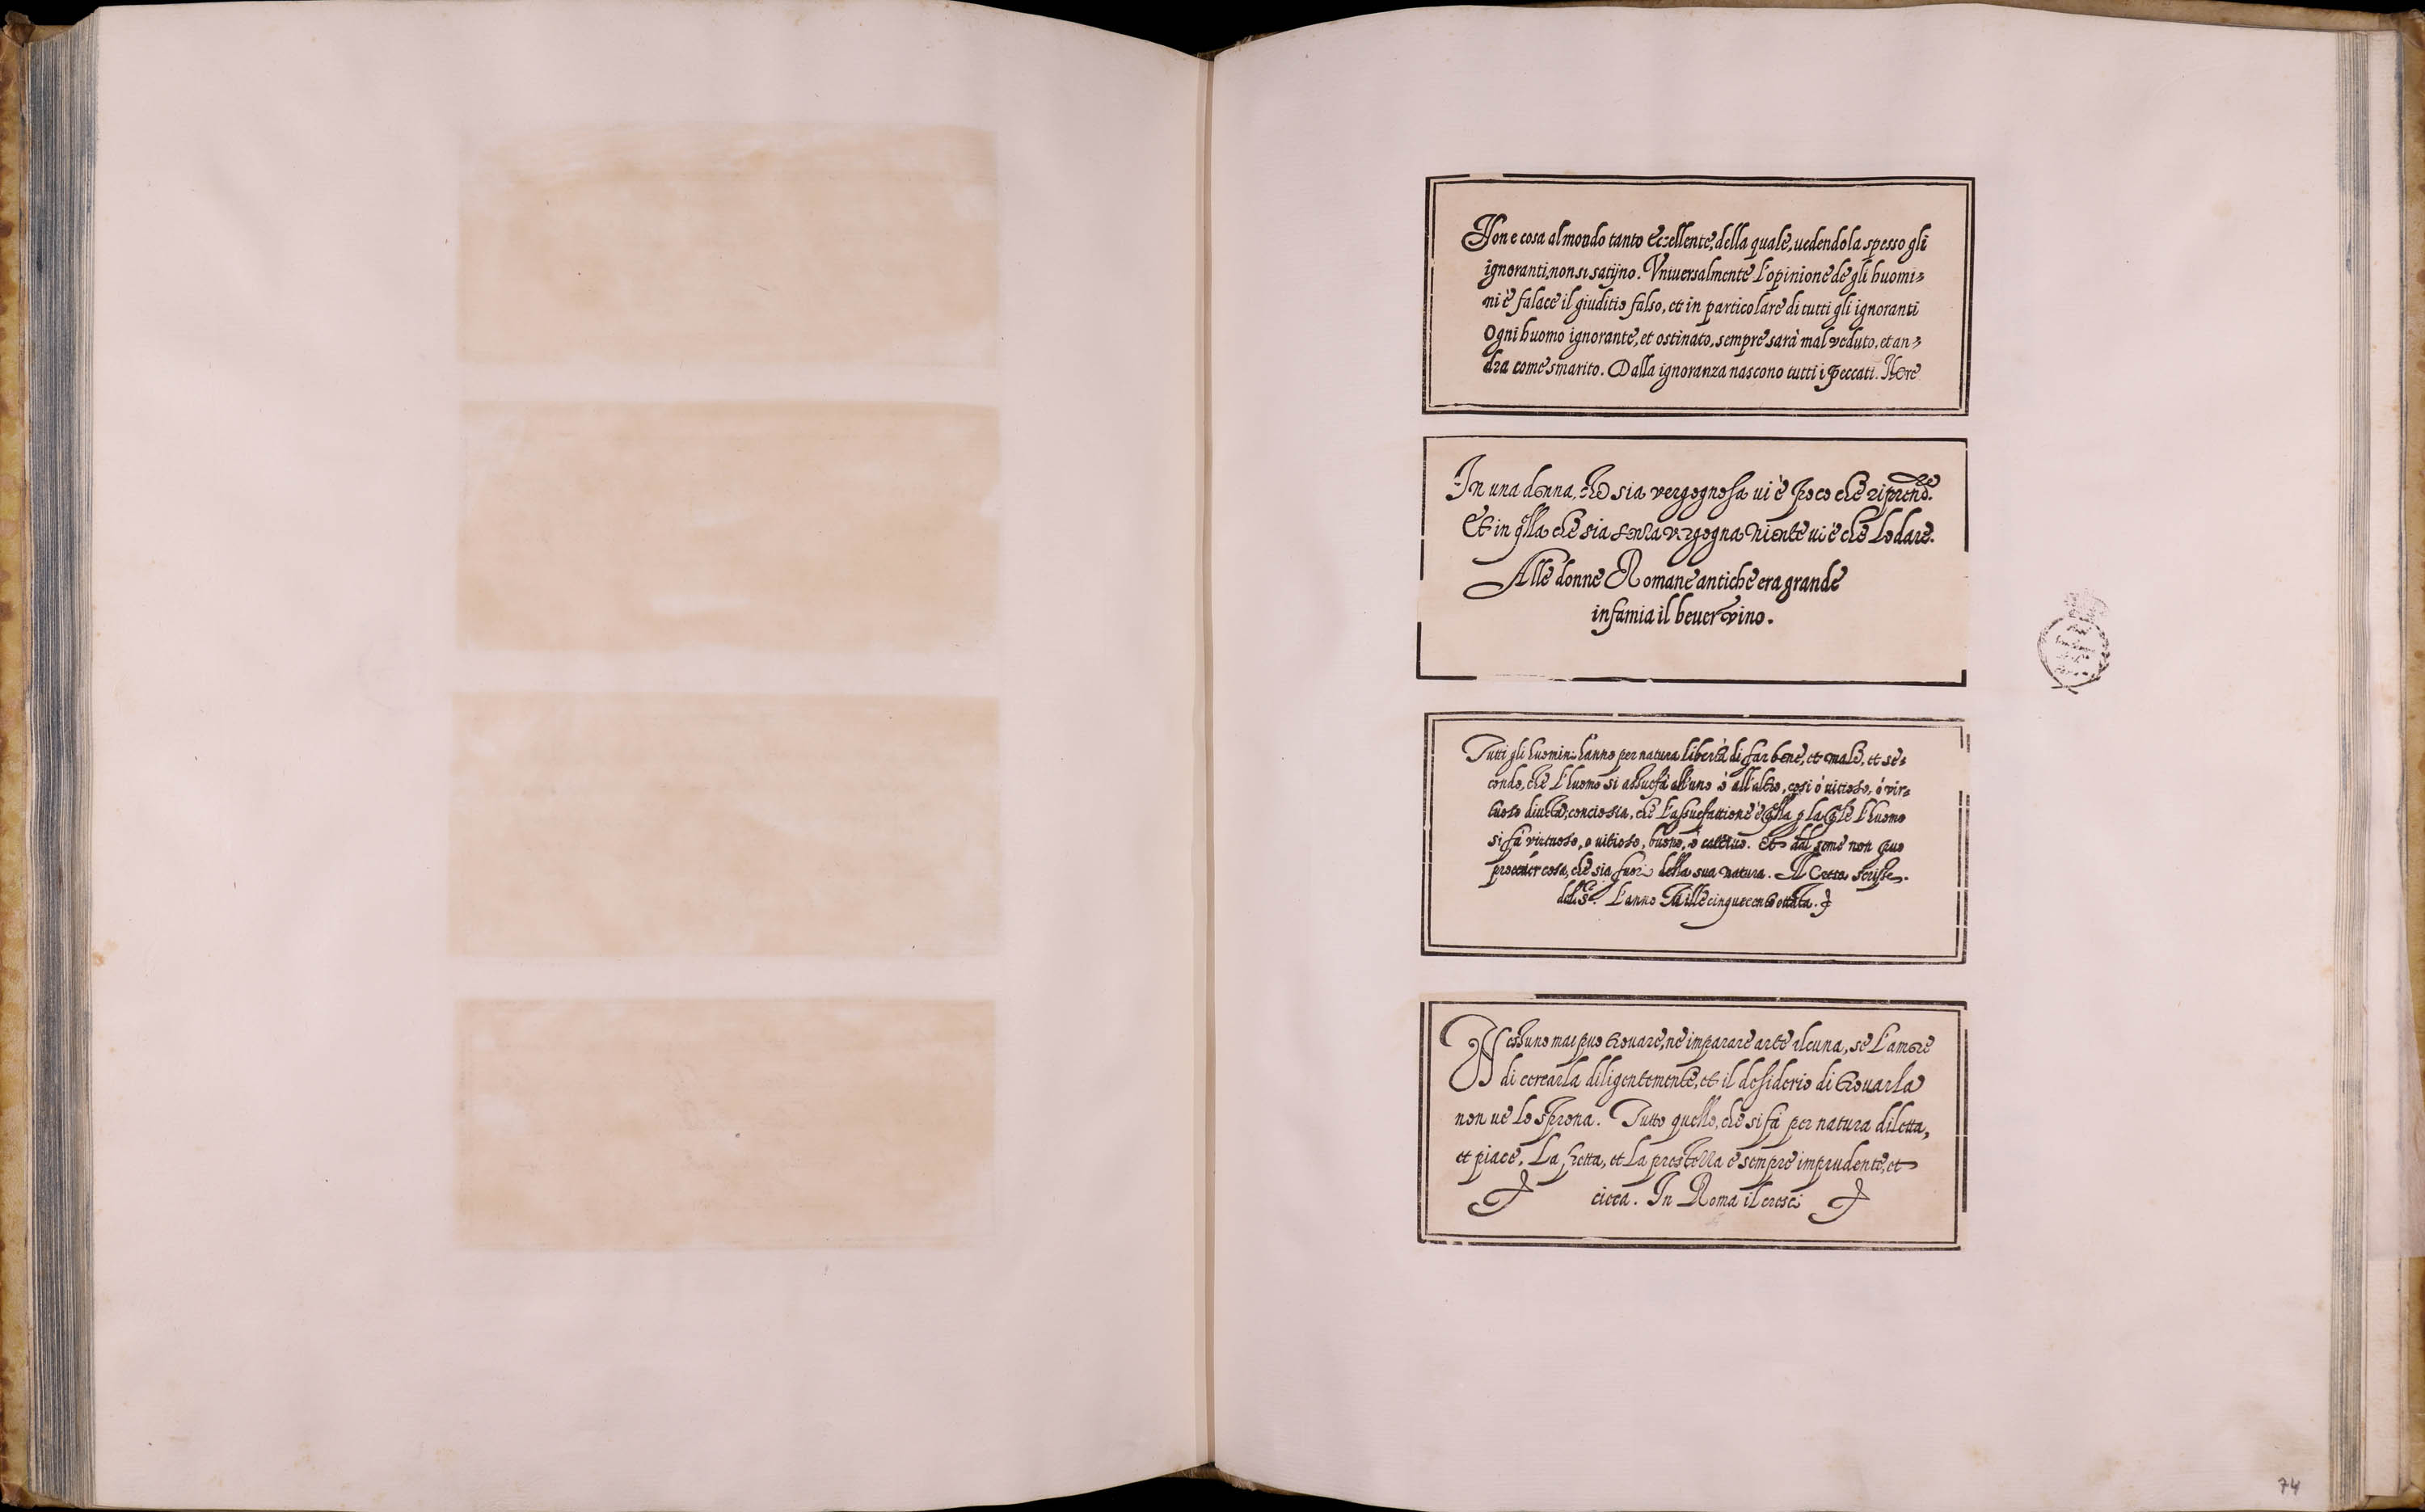 Non e cosa al mondo tanto eccellente, della quale, uedendola spesso gli
ignoranti, non si satijno. Vniuersalmente l'opinione de gli huomi=
ni è falace il giuditio falso, et in particolare di tutti gli ignoranti
Ogni huomo ignorante, et ostinato, sempre sarà mal veduto, et an=
dra come smarito. Dalla ignoranza nascono tutti i peccati.
In una donna, che sia vergognosa ui è poco che riprend.re
Et in qlla che sia senza vergogna niente ui è che lodare.
Alle donne Romane antiche era grande
infamia il beuer vino.
Tutti gli huomini hanno per natura libertà di far bene, et male, et se=
condo, che l'huomo si assuefà all'uno ò all'altro, cosi ò uitioso, ò vir=
tuoso diuēta, conciosia, che l'assuefattione è qlla p la qle l'huomo
si fà virtuoso, o uitioso, buono, ò cattiuo. Et dal seme non puo
proceder cosa, che sia fuori della sua natura. Il scriſse.
L'anno Mille cinquecento
Nessuno mai puo trouare, ne imparare arte alcuna, se l'amore
di cercarla diligentemente, et il desiderio di trouarla
non ue lo sprona. Tutto quello, che si fà per natura diletta,
et piace. La fretta, et la prestezza è sempre imprudente, et
cieca. In Roma il
74